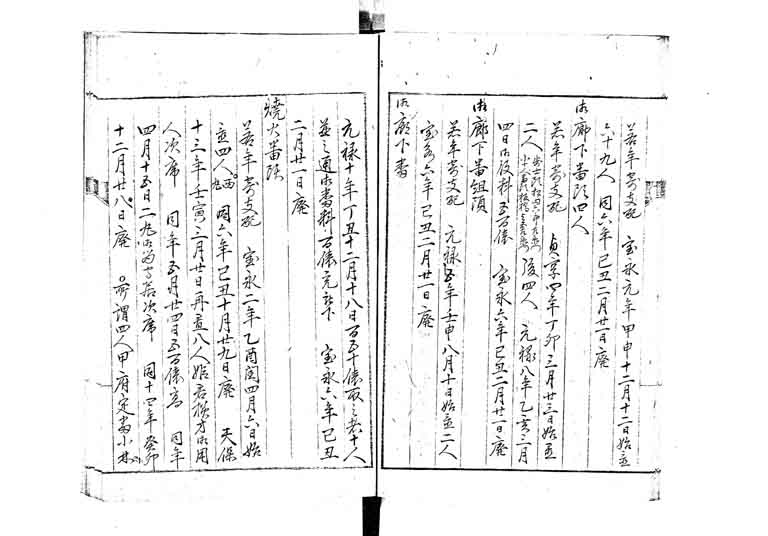 若年寄支配 宝永元年甲申十二月十二日始並
六十九人 同六年己丑二月廿一日廃
御廊下番頭四人
若年寄支配 貞享四年丁卯三月廿三日始並
二人 後四人 元禄八年乙亥三月
四日御役料五百俵 宝永六年己丑二月廿一日廃
御廊下番組頭
若年寄支配 元禄五年壬申八月十日始並二人
宝永六年己丑二月廿一日廃
御廊下番
元禄十年丁丑十二月十八日百五十俵取之者十人
並之通御番料百俵元 下 宝永六年己丑
二月廿一日廃
焼火番頭
若年寄支配 宝永二年乙酉閏四月六日始
並四人 西丸 同六年己丑十月廿九日廃 天保
十三年壬寅三月廿日再置八人始若 御用
人次席 同年五月廿四日五百俵高 同年
四月十五日二丸御留守居次席 同十四年癸卯
十二月廿八日廃 所謂四人甲府定番小林